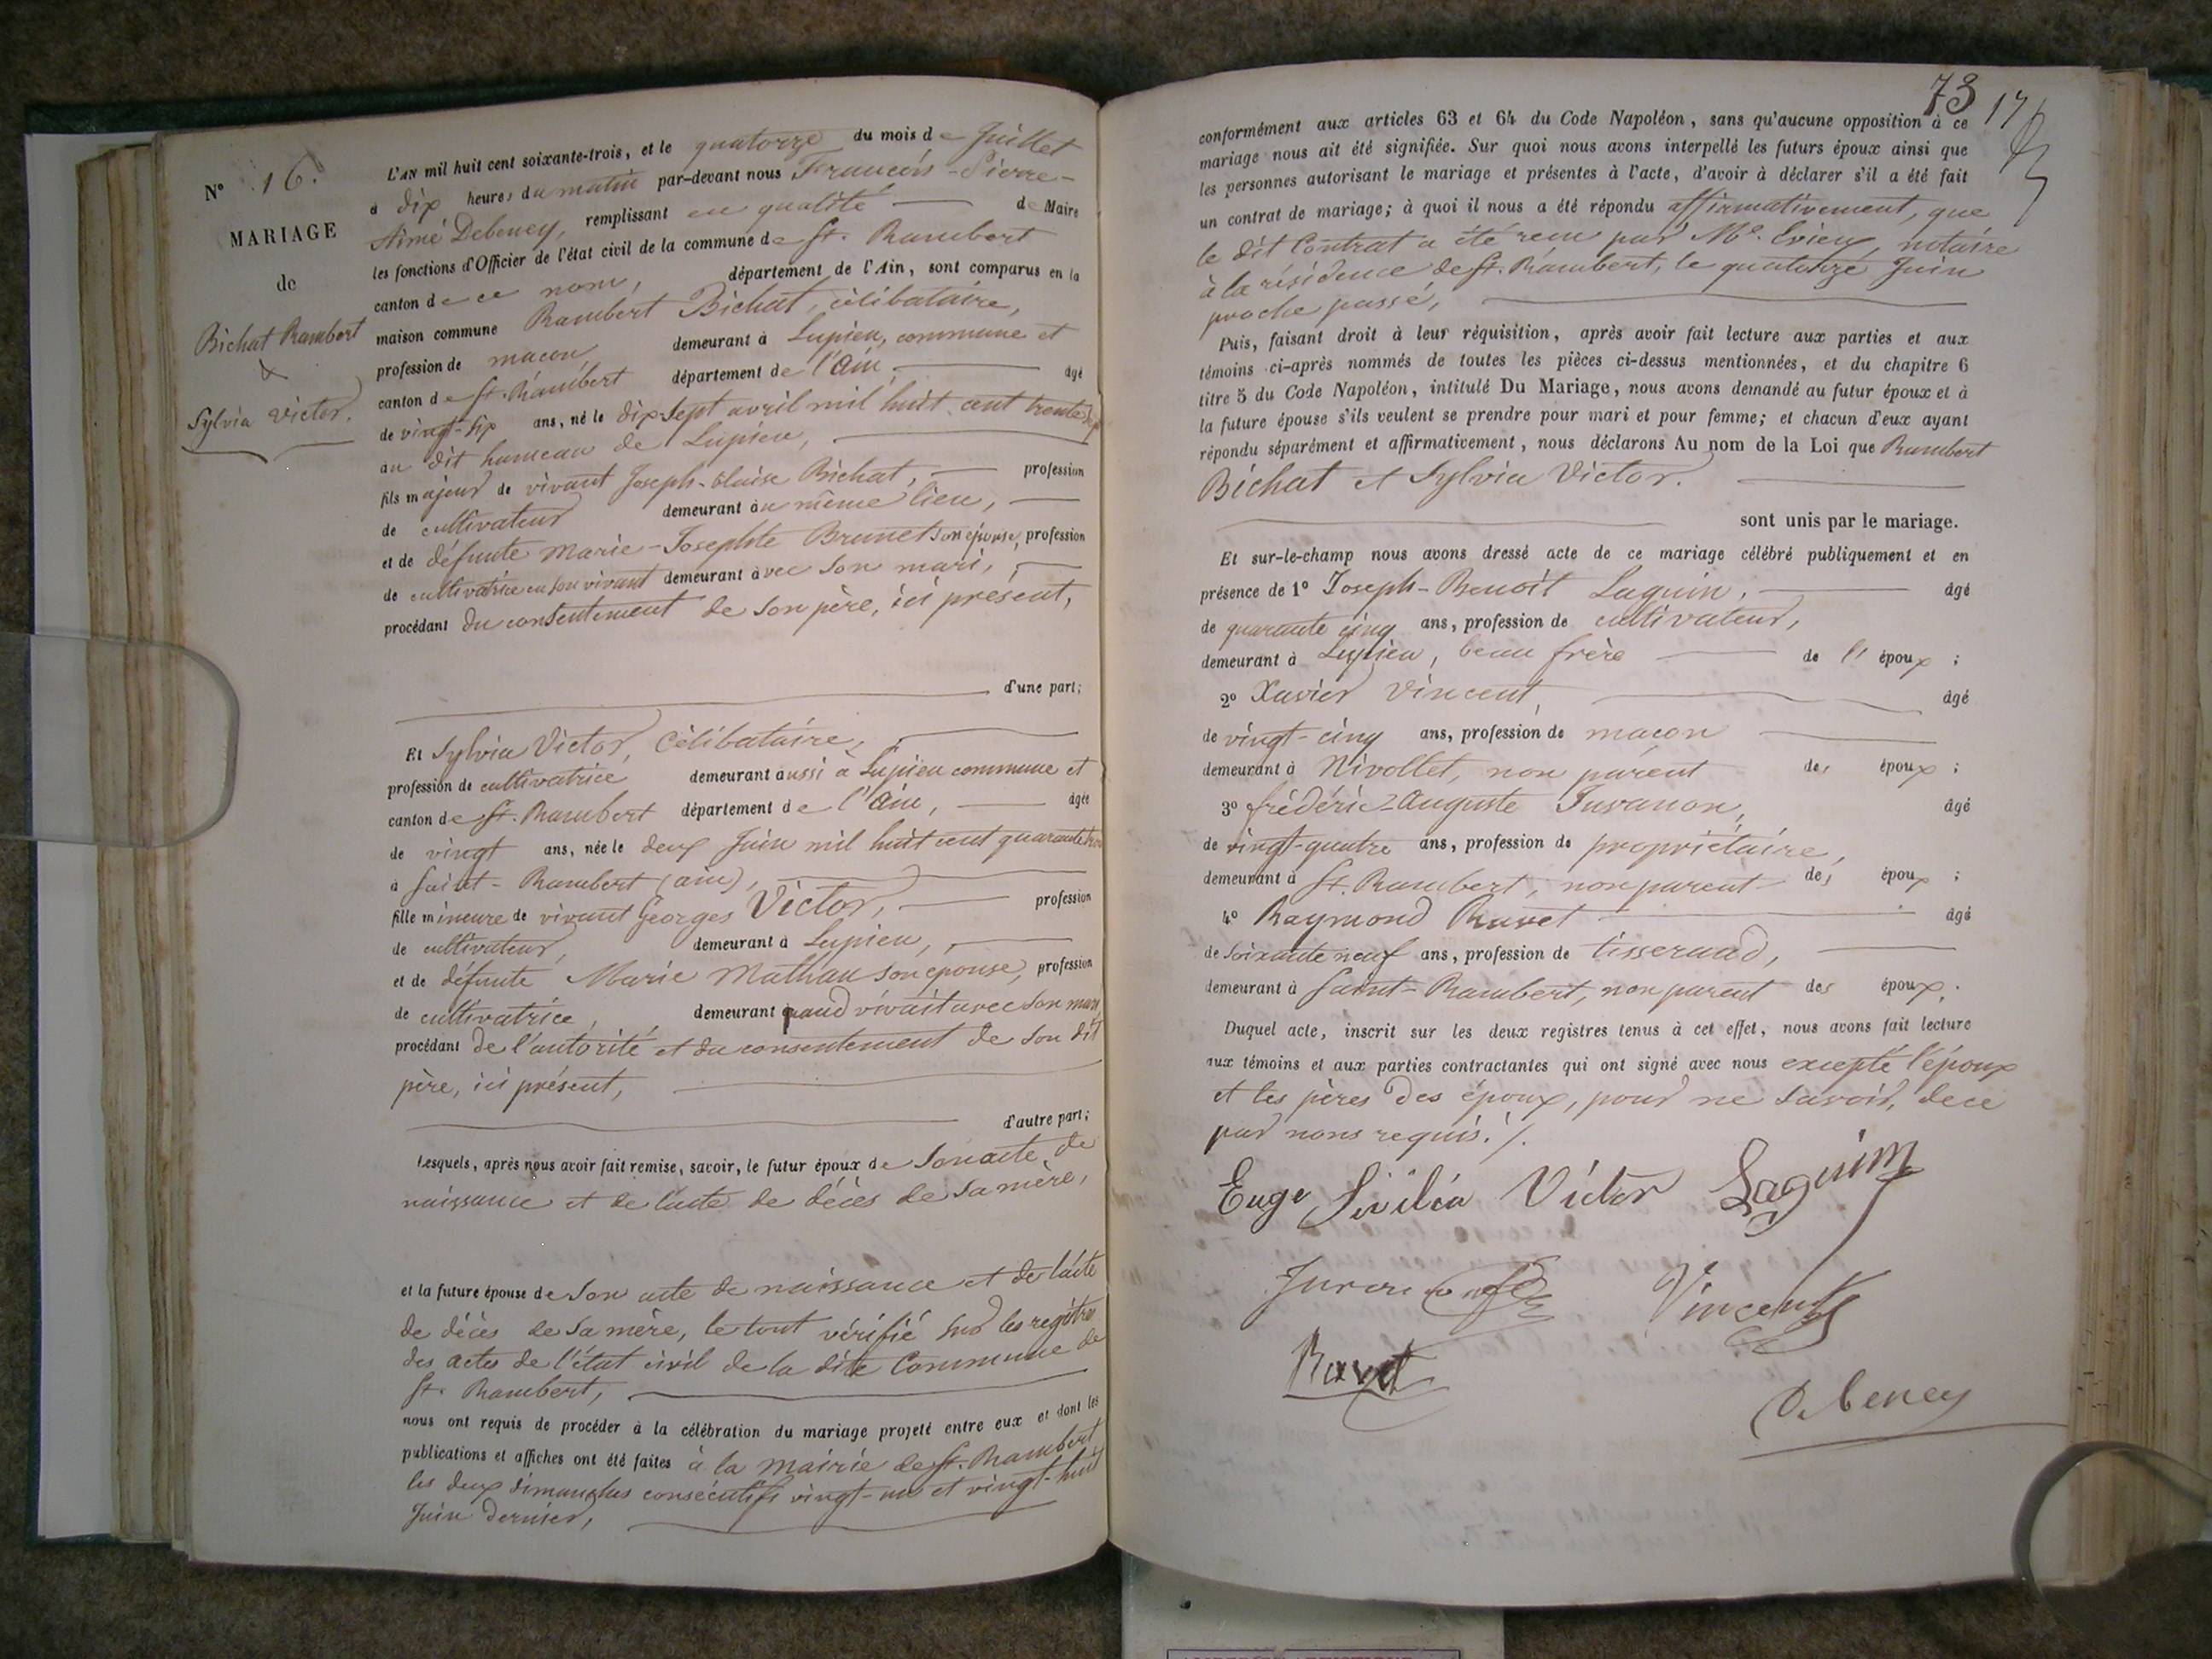 N° 16.
MARIAGE
de
Bichat Rambert
&
Sylvia Victor.
L'AN mil huit cent soixante-trois, et le quatorze du mois de Juillet
à dix heures du matin par-devant nous François-Pierre-
Aimé Debeney, remplissant en qualité de Maire
les fonctions d'Officier de l'état civil de la commune de St. Rambert
canton de ce nom, département de l'Ain, sont comparus en la
maison commune Rambert Bichat, célibataire,
profession de maçon, demeurant à Lupieu, commune et
canton de St. Rambert département de l'Ain âgé
de vingt-six ans, né le dix sept avril mil huit cent trente sept
au dit hameau de Lupieu,
fils majeur de vivant Joseph-blaise Bichat, profession
de cultivateur demeurant au même lieu,
et de défunte Marie-Josephte Brunet son épouse, profession
de cultivatrice en son vivant demeurant avec son mari,
procédant du consentement de son père, ici présent,
d'une part;
Et Sylvia Victor, Célibataire,
profession de cultivatrice demeurant aussi à Lupieu commune et
canton de St. Rambert département de l'Ain, âgée
de vingt ans, née le deux Juin mil huit cent quarante trois
à Saint-Rambert (ain),
fille mineure de vivant Georges Victor, profession
de cultivateur, demeurant à Lupieu,
et de défunte Marie Mathan son épouse, profession
de cultivatrice, demeurant quand vivait avec son mari,
procédant de l'autorité et du consentement de son dit
père, ici présent,
d'autre part;
Lesquels, après nous avoir fait remise, savoir, le futur époux de son acte de
naissance et de l'acte de décès de sa mère,
et la future épouse de son acte de naissance et de l'acte
de décès de sa mère, le tout vérifié sur les registres
des actes de l'état civil de la dite Commune de
St. Rambert,
nous ont requis de procéder à la célébration du mariage projeté entre eux et dont les
publications et affiches ont été faites à la mairie de St. Rambert
les deux dimanches consécutifs vingt-un et vingt-huit
Juin dernier,
73 17
conformément aux articles 63 et 64 du Code Napoléon, sans qu'aucune opposition à ce
mariage nous ait été signifiée. Sur quoi nous avons interpellé les futurs époux ainsi que
les personnes autorisant le mariage et présentes à l'acte, d'avoir à déclarer s'il a été fait
un contrat de mariage; à quoi il nous a été répondu affirmativement, que
le dit Contrat a été reçu par Me. Evieux, notaire
à la résidence de St. Rambert, le quatorze Juin
proche passé,
Puis, faisant droit à leur réquisition, après avoir fait lecture aux parties et aux
témoins ci-après nommés de toutes les pièces ci-dessus mentionnées, et du chapitre 6
titre 5 du Code Napoléon, intitulé Du Mariage, nous avons demandé au futur époux et à
la future épouse s'ils veulent se prendre pour mari et pour femme; et chacun d'eux ayant
répondu séparément et affirmativement, nous déclarons Au nom de la Loi que Rambert
Bichat et Sylvia Victor.
sont unis par le mariage.
Et sur-le-champ nous avons dressé acte de ce mariage célébré publiquement et en
présence de 1° Joseph-Benoît Laguin, âgé
de quarante cinq ans, profession de cultivateur,
demeurant à Lupieu, beau frère de l'époux;
2° Xavier Vincent, âgé
de vingt-cinq ans, profession de maçon
demeurant à Nivollet, non parent des époux;
3° frédéric-Auguste Juvanon, âgé
de vingt-quatre ans, profession de propriétaire,
demeurant à St. Rambert, non parent des époux;
4° Raymond Ravet âgé
de soixante neuf ans, profession de tisserand,
demeurant à Saint-Rambert, non parent des époux.
Duquel acte, inscrit sur les deux registres tenus à cet effet, nous avons fait lecture
aux témoins et aux parties contractantes qui ont signé avec nous excepté l'époux
et les pères des époux, pour ne savoir, de ce
par nous requis./.
Euge Sivilia Victor Laguin
Juvanon Vincent
Ravet
Debeney